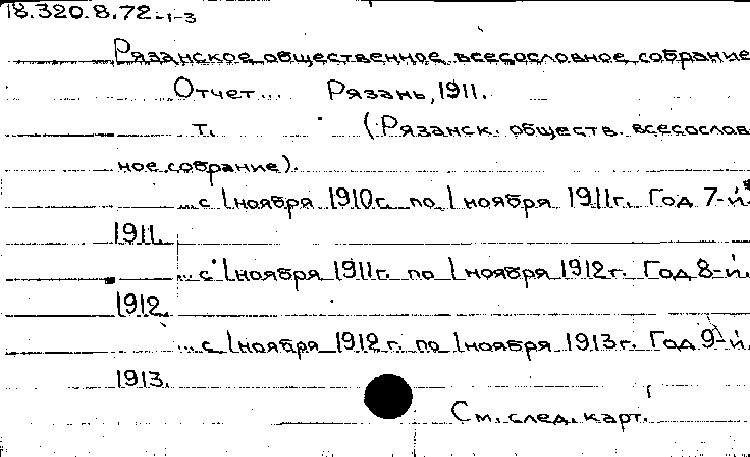 18.320.8.72-1-3
Рязанское общественное всесословное собрание
Отчет... Рязань, 1911.
Т. (Рязанск. обществ. всесослов
ное собрание).
...с 1 ноября 1910г. по 1 ноября 1911г. Год 7-й.
1911.
...с 1 ноября 1911г. по 1 ноября 1912г. Год 8-й.
1912.
...с 1 ноября 1912г. по 1 ноября 1913г. Год 9-й.
1913.
См. след. карт.